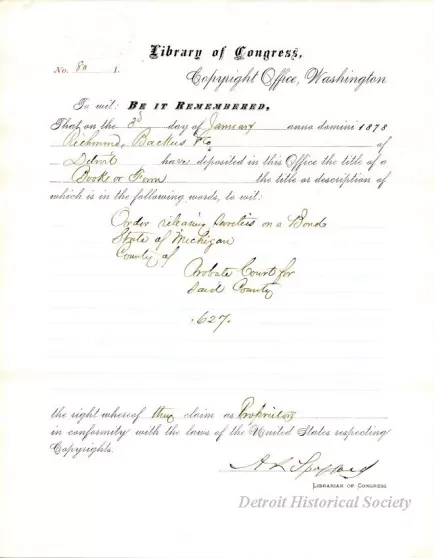 Library of Congress,
No. 80 1.
Copyright Office, Washington
To wit: BE IT REMEMBERED,
That on the 3d day of January anno domini 1878
Richmond, Backus & Co of
Detroit have deposited in this Office the title of a
Book or Form the title or description of
which is in the following words, to wit:
Order releasing Sureties on a Bond
State of Michigan
County of
Probate Court for
said County
.627.
the right whereof they claim as Proprietors
in conformity with the laws of the United States respecting
Copyrights.
A R Spofford
LIBRARIAN OF CONGRESS
Detroit Historical Society